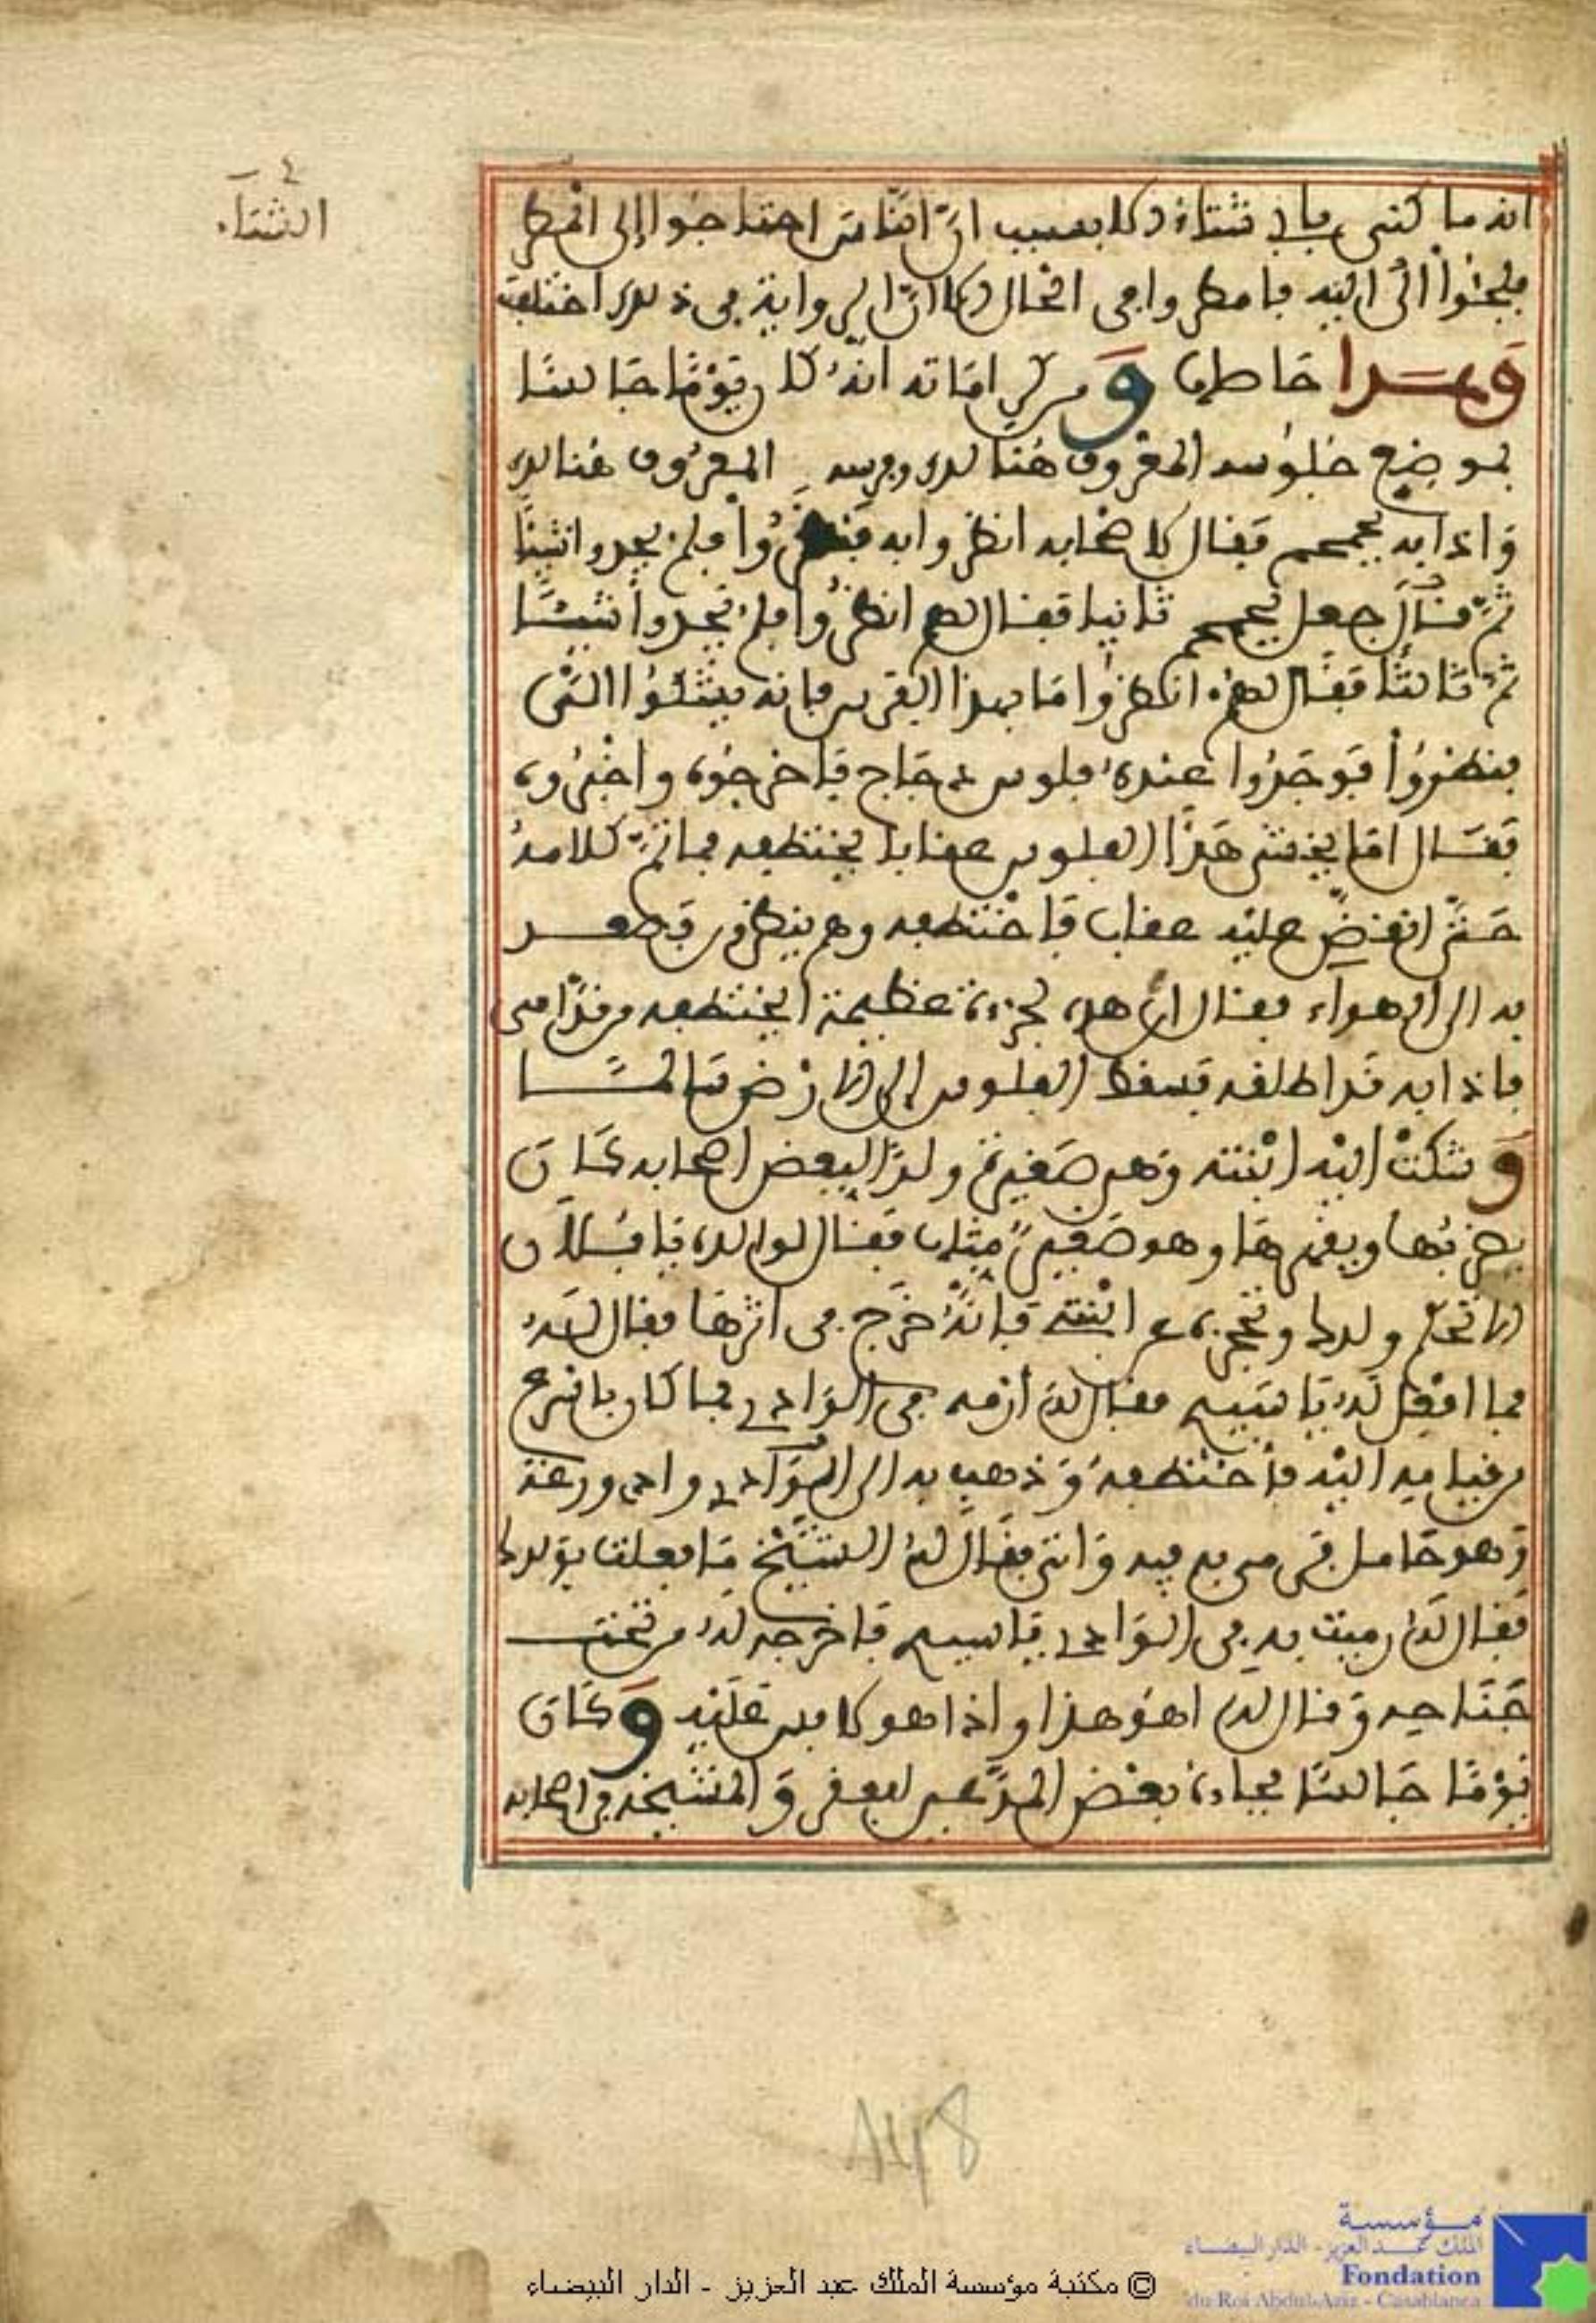 الشتاء
انه ما كنى بابي شتاء وكا بسبب ان الناس احتاجوا إلى المطر
فلجئوا الى اليه فامطروا في الحال وكان الرواية في ذلك اختلفت
وهذا حاصلها ومن كراماته انه كان يوما جالسا
بموضع جلوسه المعروف هنالك وفرسه المعروف هنالك
واذا به يحمحم فقال لاصحابه انظروا به فنظروا فلم يجدوا شيئا
ثم قال جعل يحمحم ثانيا فقال لهم انظروا فلم يجدوا شيئا
ثم ثالثا فقال لهم انظروا ما بهذا الفرس فإنه يشكوا الشي
فنظروا فوجدوا عنده فلوس دجاج فاخرجوه واخبروه
فقال اما يخشى هذا الفلوس عقابا يختطفه فما تم كلامه
حتى انقض عليه عقاب فاختطفه وهم ينظرون فصعد
به الى الهواء فقال ان هذه لجرءة عظيمة ايختطفه من قدامي
فاذا به قد اطلقه فسقط الفلوس الى الارض سالما
وشكت اليه ابنته وهي صغيرة ولدا لبعض اصحابه كان
يضربها ويقهرها وهو صغير مثلها فقال لوالده يا فلان
الا تحكم ولدك وتحجزه عن ابنتي فإنه خرج في اثرها فقال له
فما افعل له يا سيدي فقال له أرمه في الوادي فما كان باسرع
من قيامه اليه فأختطفه وذهب به الى الوادي وادي ورغة
وهو حامل فرمى به فيه واتى فقال له الشيخ ما فعلت بولدك
فقال له رميت به في الوادي يا سيدي فاخرجه له من تحت
جناحه وقال له اهو هذا واذا هو لا باس عليه وكان
يوما جالسا فجاءه بعض المدعين للفقر والمشيخة من اصحابه
148
© مكتبة مؤسسة الملك عبد العزيز - الدار البيضاء
مؤسسة
الملك عبد العزيز - الدار البيضاء
Fondation
du Roi Abdul-Aziz - Casablanca